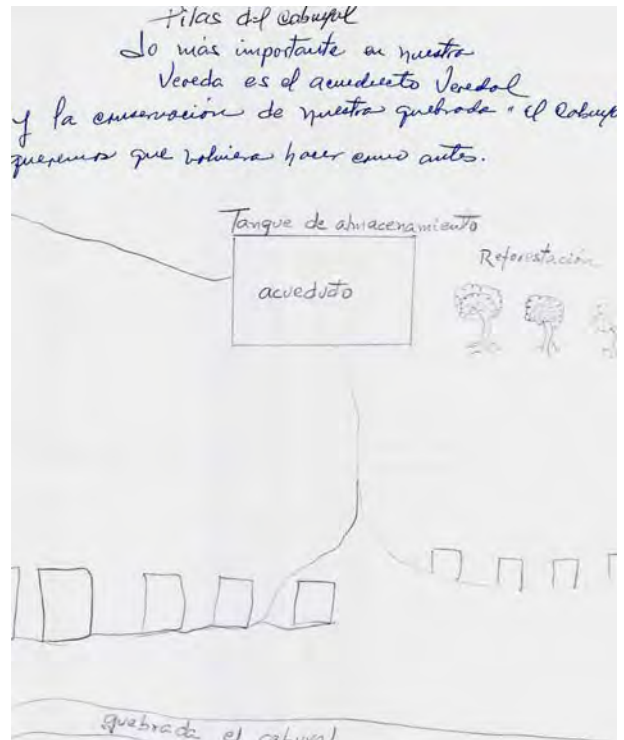 Pilas del Cabuyal
Lo más importante en nuestra
Vereda es el acueducto Veredal
y la conservación de nuestra quebrada "el Cabuya
queremos que volviera hacer como antes.
Tanque de almacenamiento
Reforestación
acueducto
quebrada el cabuyal